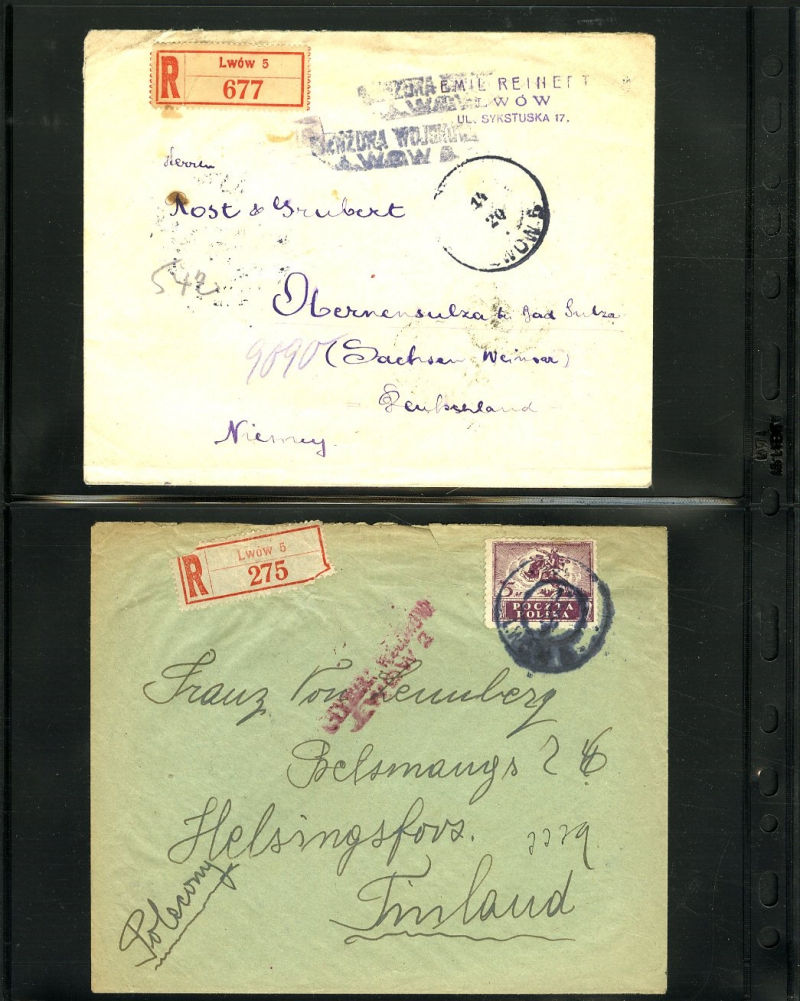 R
Lwów 5
677
EMIL REINERT
LWÓW
UL. SYKSTUSKA 17.
CENZURA
CENZURA WOJSKOWA
LWÓW 2
14
20
LWOW 5
Herrn
Rost & Grubert
542
Obernensulza b. Bad Sulza
9090
(Sachsen Weimar)
Deutschland
Niemcy
R
Lwów 5
275
5
POCZTA
POLSKA
LWÓW 2
Franz Von
Helsingfors.
2279
Finland
Polecony